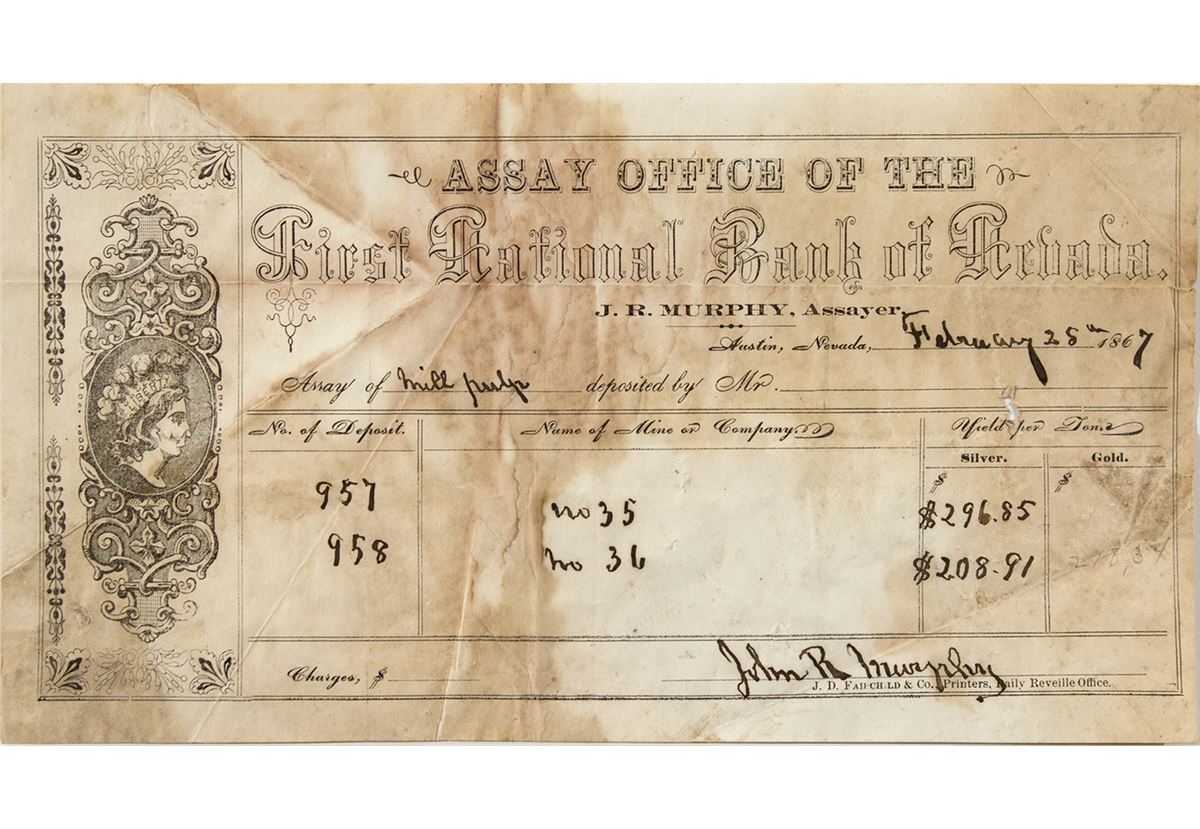 ASSAY OFFICE OF THE
First National Bank of Nevada.
J. R. MURPHY, Assayer.
Austin, Nevada, February 28th 1867
Assay of Mill pulp deposited by Mr.
No. of Deposit. Name of Mine or Company. Yield per Ton.
Silver. Gold.
$ $
957 no 35 $296.85
958 no 36 $208.91
LIBERTY
John R Murphy
Charges, $
J. D. FAIRCHILD & Co., Printers, Daily Reveille Office.